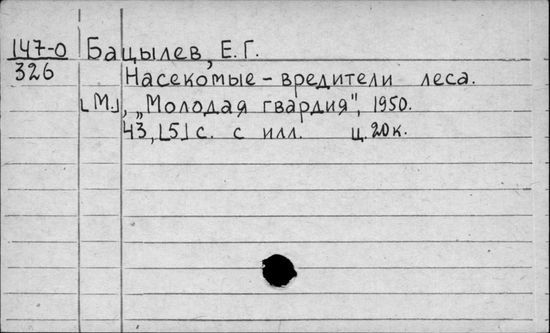 147-0 Бацылев, Е. Г.
326 Насекомые - вредители леса.
[М.], „Молодая гвардия", 1950.
43, [5] с. с илл. ц. 20 к.